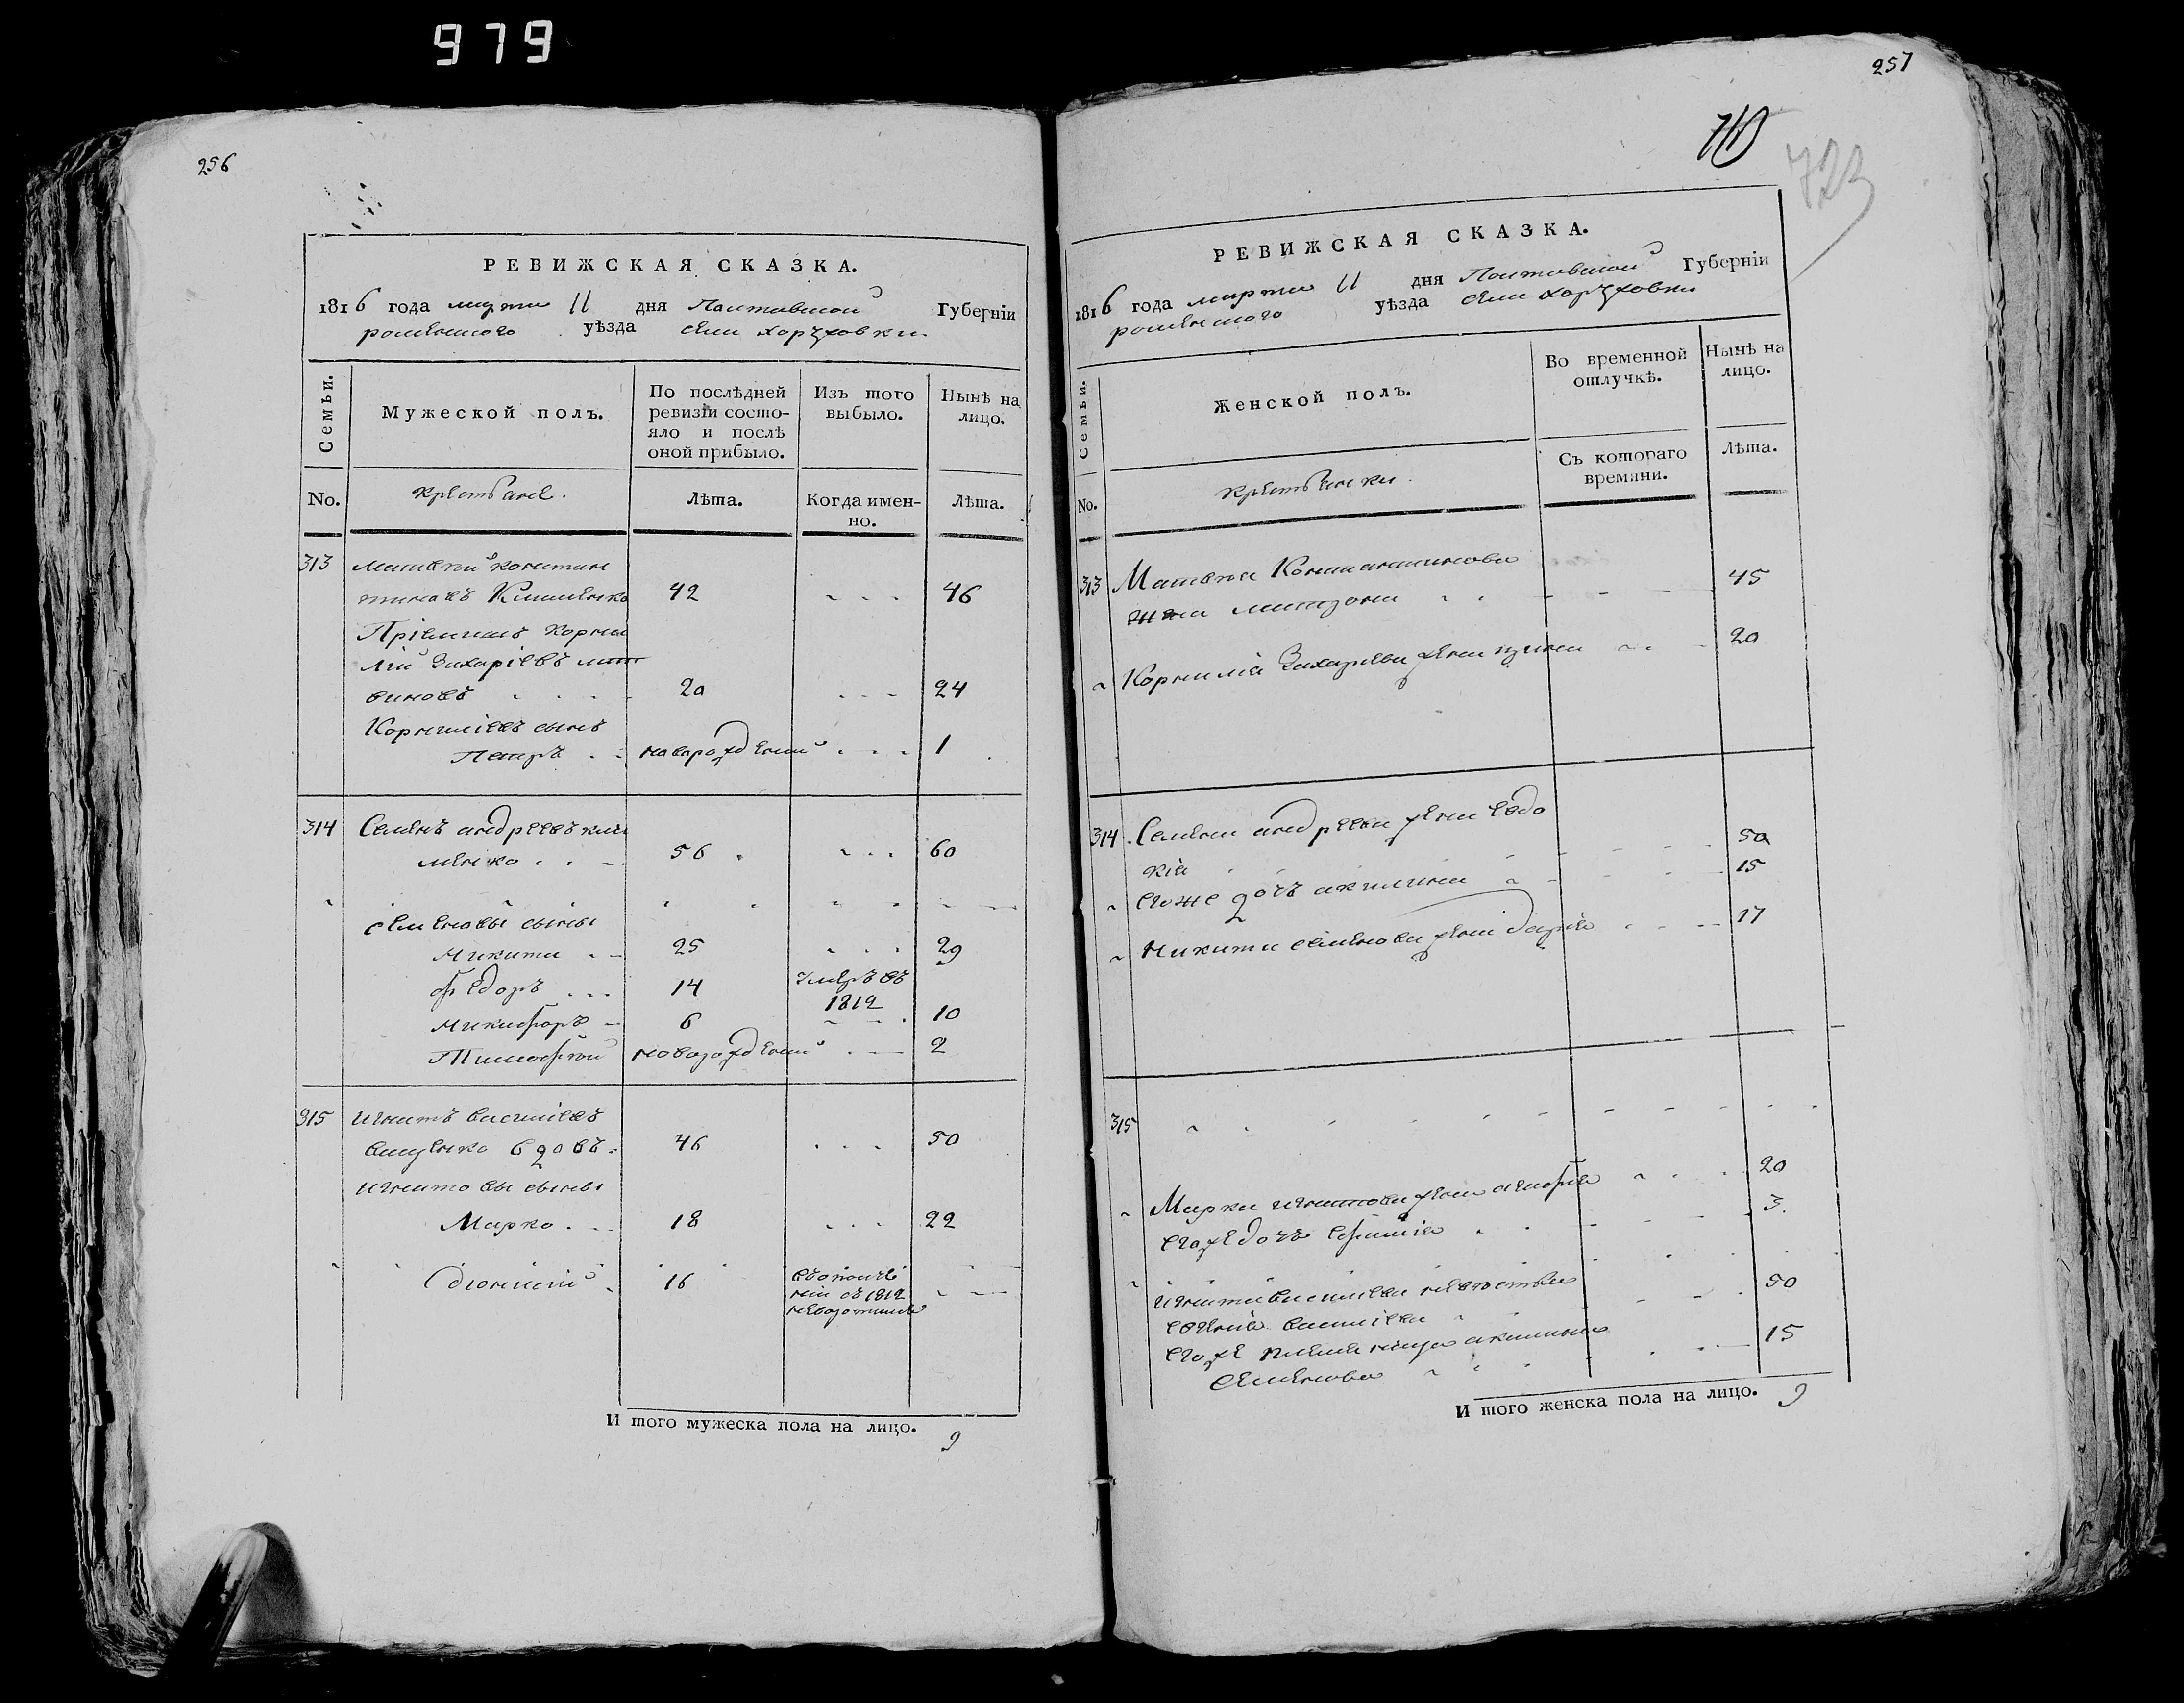 979
256
РЕВИЖСКАЯ СКАЗКА.
1816 года марта 11 дня Полтавской Губерніи
роменского уѣзда села Хоружовки
Семьи.
Мужеской полъ.
По послѣдней ревизіи состояло и послѣ оной прибыло.
Изъ того выбыло.
Нынѣ на лицо.
No.
крестьяне.
Лѣта.
Когда именно.
Лѣта.
313 Матвей констан
тиновъ 42 46
Пріемышъ корни
лій Захаріевъ лит
виновъ 20 24
Корниліевъ сынъ
Петръ новорожденной 1
314 Семенъ андреевъ кли
менко 56 60
семеновы сыны
Никита 25 29
федоръ 14 умеръ въ 1812
Никифоръ 6 10
Тимофей новорожденной 2
315 игнатъ василіевъ
ващенко вдовъ 46 50
игнатовы сыны
Марко 18 22
діонисій 16 въ 1812
И того мужеска пола на лицо. 9
257
723
РЕВИЖСКАЯ СКАЗКА.
1816 года марта 11 дня Полтавской Губерніи
роменского уѣзда села хоружовки
Семьи.
Женской полъ.
Во временной отлучкѣ.
Нынѣ на лицо.
No.
крестьянки.
Съ котораго времяни.
Лѣта.
313 Матвея Константинова
жена 45
Корнилія Захариева жена 20
314 Семена андреева жена евдо
кія 50
егоже дочь акилина 15
Никиты семенова жена дарія 17
315
Марка игнатова жена 20
егоже дочь 3
игната васильева невестка
васильева 50
егоже племеница акилина
Семенова 15
И того женска пола на лицо. 9